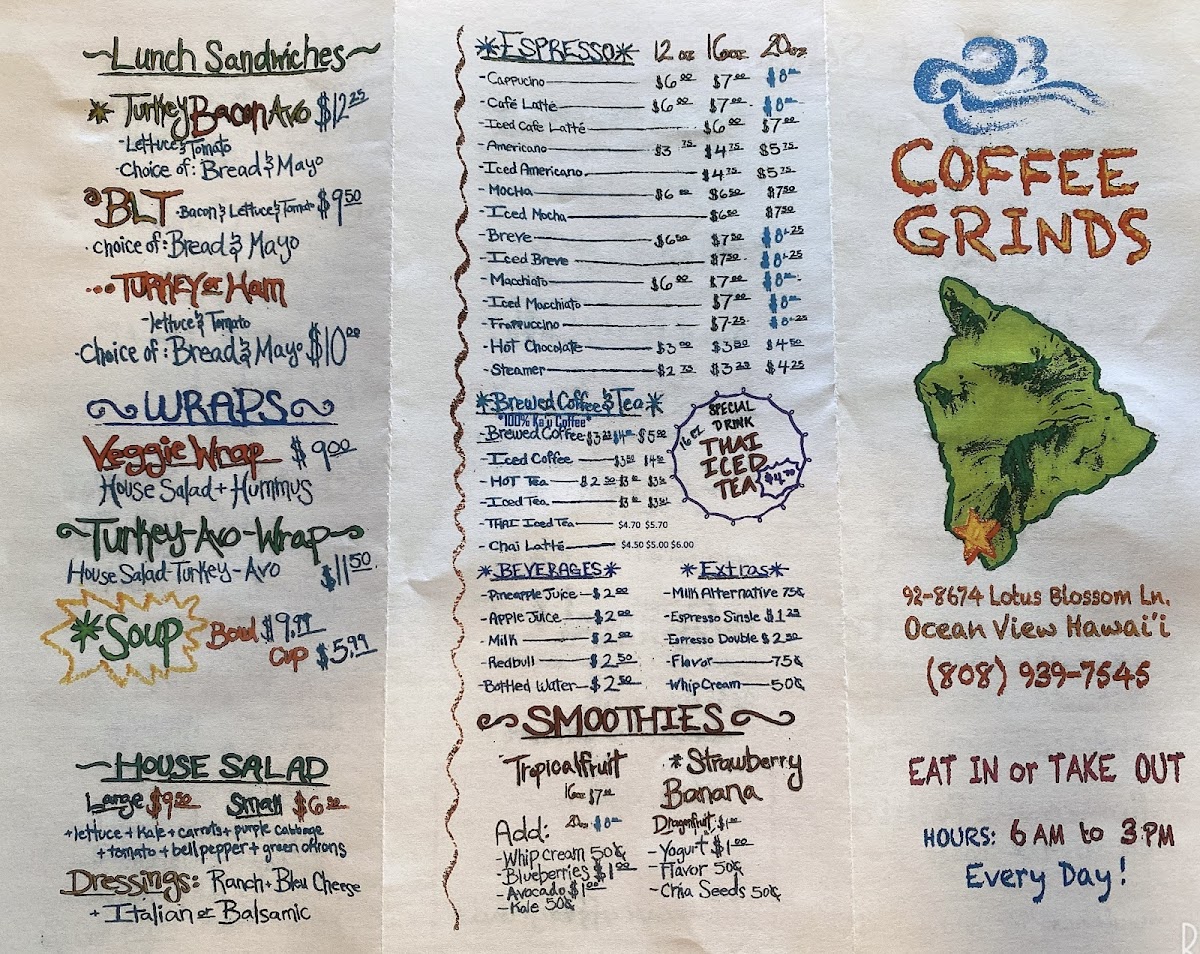 ~Lunch Sandwiches~
Turkey Bacon Avo $12.25
-Lettuce & Tomato
-Choice of: Bread & Mayo
BLT -Bacon & Lettuce & Tomato $9.50
-choice of: Bread & Mayo
...TURKEY or Ham
-lettuce & Tomato
-Choice of: Bread & Mayo $10.00
WRAPS
Veggie Wrap $9.00
House Salad + Hummus
Turkey-Avo-Wrap
House Salad-Turkey-Avo $11.50
*Soup Bowl $9.99
Cup $5.99
~HOUSE SALAD
Large $9.50 Small $6.50
+lettuce + Kale + carrots + purple cabbage
+tomato + bell pepper + green onions
Dressings: Ranch + Bleu Cheese
+ Italian or Balsamic
*ESPRESSO* 12oz 16oz 20oz
-Cappucino $6.00 $7.00 $8.00
-Café Latté $6.00 $7.00 $8.00
-Iced Cafe Latté $6.00 $7.00
-Americano $3.75 $4.75 $5.75
-Iced Americano $4.75 $5.75
-Mocha $6.00 $6.50 $7.50
-Iced Mocha $6.50 $7.50
-Breve $6.50 $7.50 $8.25
-Iced Breve $7.50 $8.25
-Macchiato $6.00 $7.00 $8.00
-Iced Macchiato $7.00 $8.00
-Frappuccino $7.25 $8.25
-Hot Chocolate $3.00 $3.50 $4.50
-Steamer $2.75 $3.25 $4.25
*Brewed Coffee & Tea*
*100% Ka'u Coffee*
Brewed Coffee $5.00
-Iced Coffee $3.50
-Hot Tea $2.50
-Iced Tea
-THAI Iced Tea $4.70 $5.70
-Chai Latté $4.50 $5.00 $6.00
SPECIAL
DRINK
16 oz
THAI
ICED
TEA
$4.70
*BEVERAGES*
-Pineapple Juice $2.00
-Apple Juice $2.00
-Milk $2.00
-Redbull $2.50
-Bottled Water $2.50
*Extras*
-Milk Alternative 75¢
-Espresso Single $1.25
-Espresso Double $2.50
-Flavor 75¢
-Whip Cream 50¢
SMOOTHIES
Tropicalfruit
16oz $7.00
20oz $8.00
*Strawberry
Banana
Dragonfruit $1.00
Add:
-Whip cream 50¢
-Blueberries $1.00
-Avocado $1.00
-Kale 50¢
-Yogurt $1.00
-Flavor 50¢
-Chia Seeds 50¢
COFFEE
GRINDS
92-8674 Lotus Blossom Ln.
Ocean View Hawai'i
(808) 939-7545
EAT IN or TAKE OUT
HOURS: 6 AM to 3 PM
Every Day!